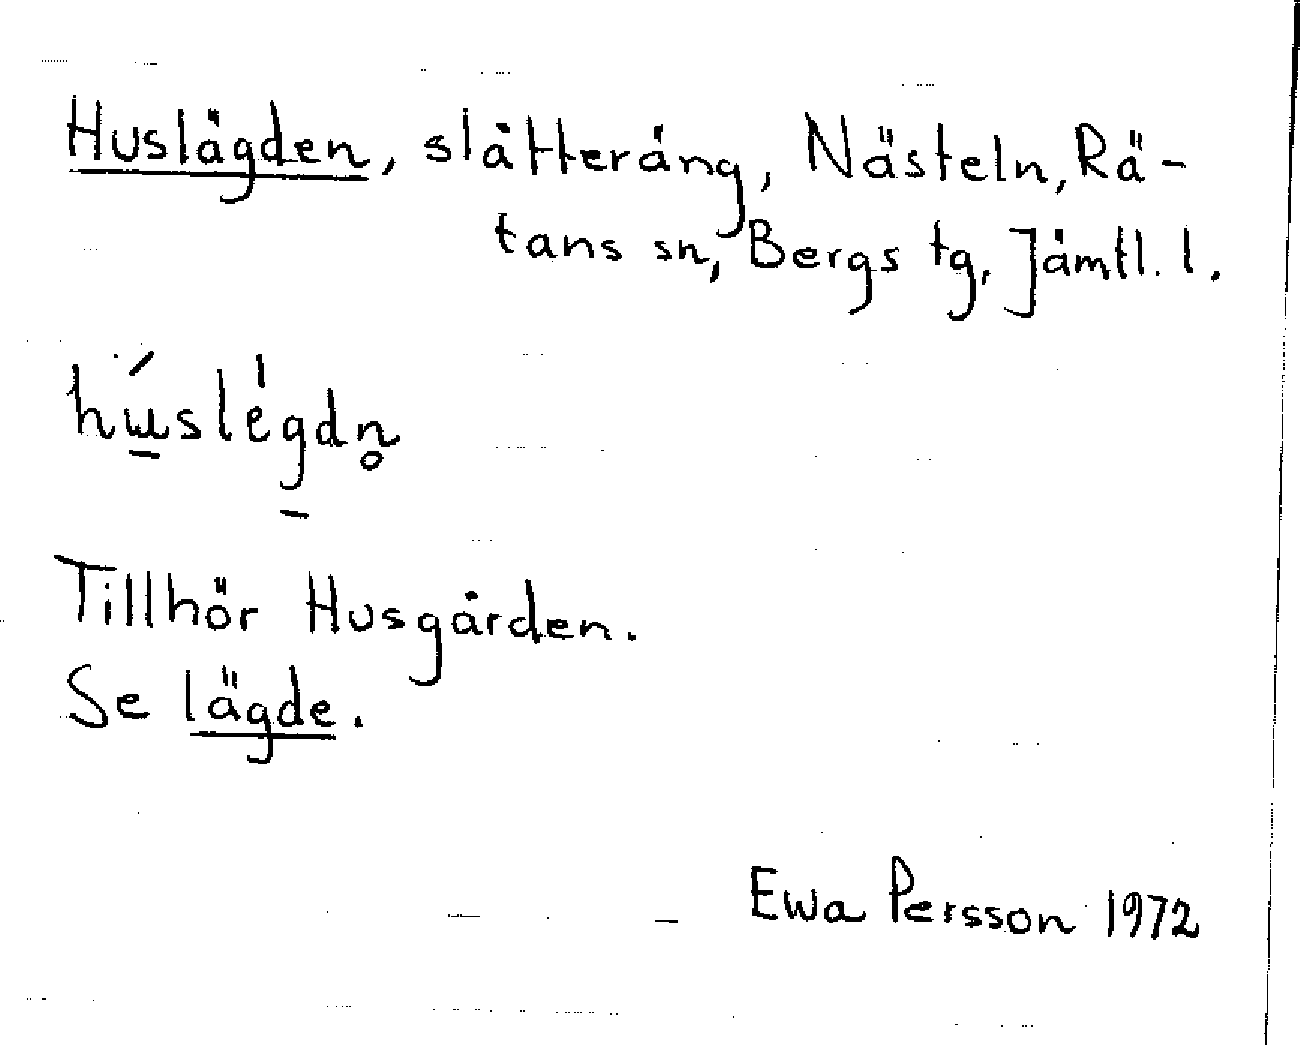 Huslägden, slåtteräng, Nästeln, Rä-
tans sn, Bergs tg, Jämtl. l.
hú̱slégdn̥
Tillhör Husgården.
Se lägde.
Ewa Persson 1972